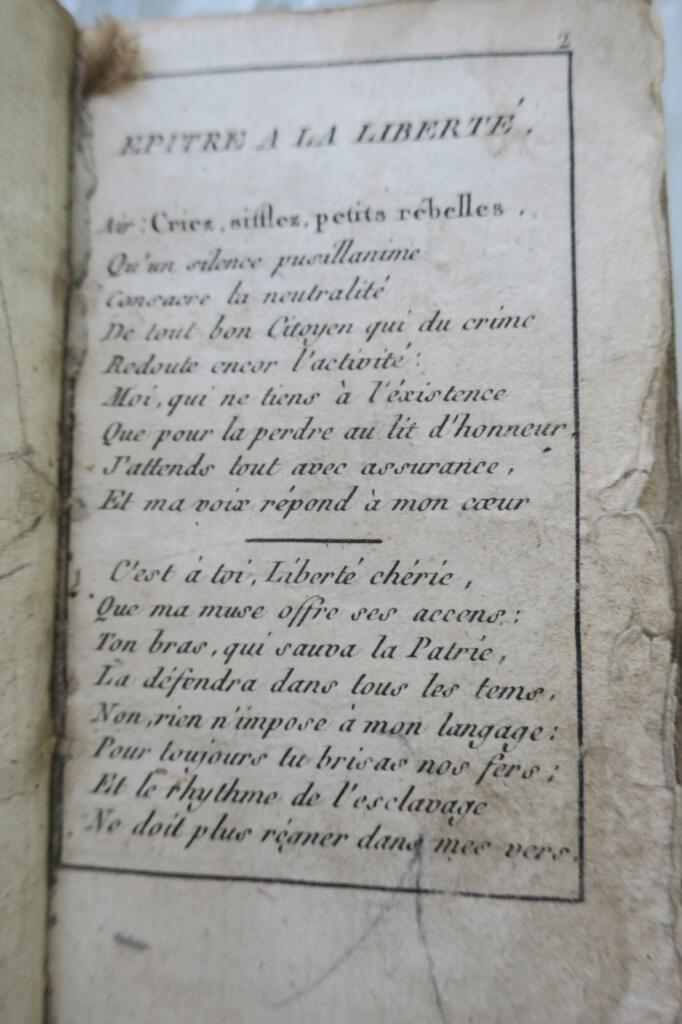 2
EPITRE A LA LIBERTÉ.
Air: Criez, sifflez, petits rébelles.
Qu'un silence pusillanime
Consacre la neutralité
De tout bon Citoyen qui du crime
Redoute encor l'activité:
Moi, qui ne tiens à l'éxistence
Que pour la perdre au lit d'honneur,
J'attends tout avec assurance,
Et ma voix répond à mon cœur
C'est à toi, Liberté chérie,
Que ma muse offre ses accens:
Ton bras, qui sauva la Patrie,
La défendra dans tous les tems.
Non, rien n'impose à mon langage:
Pour toujours tu brisas nos fers;
Et le rhythme de l'esclavage
Ne doit plus régner dans mes vers.